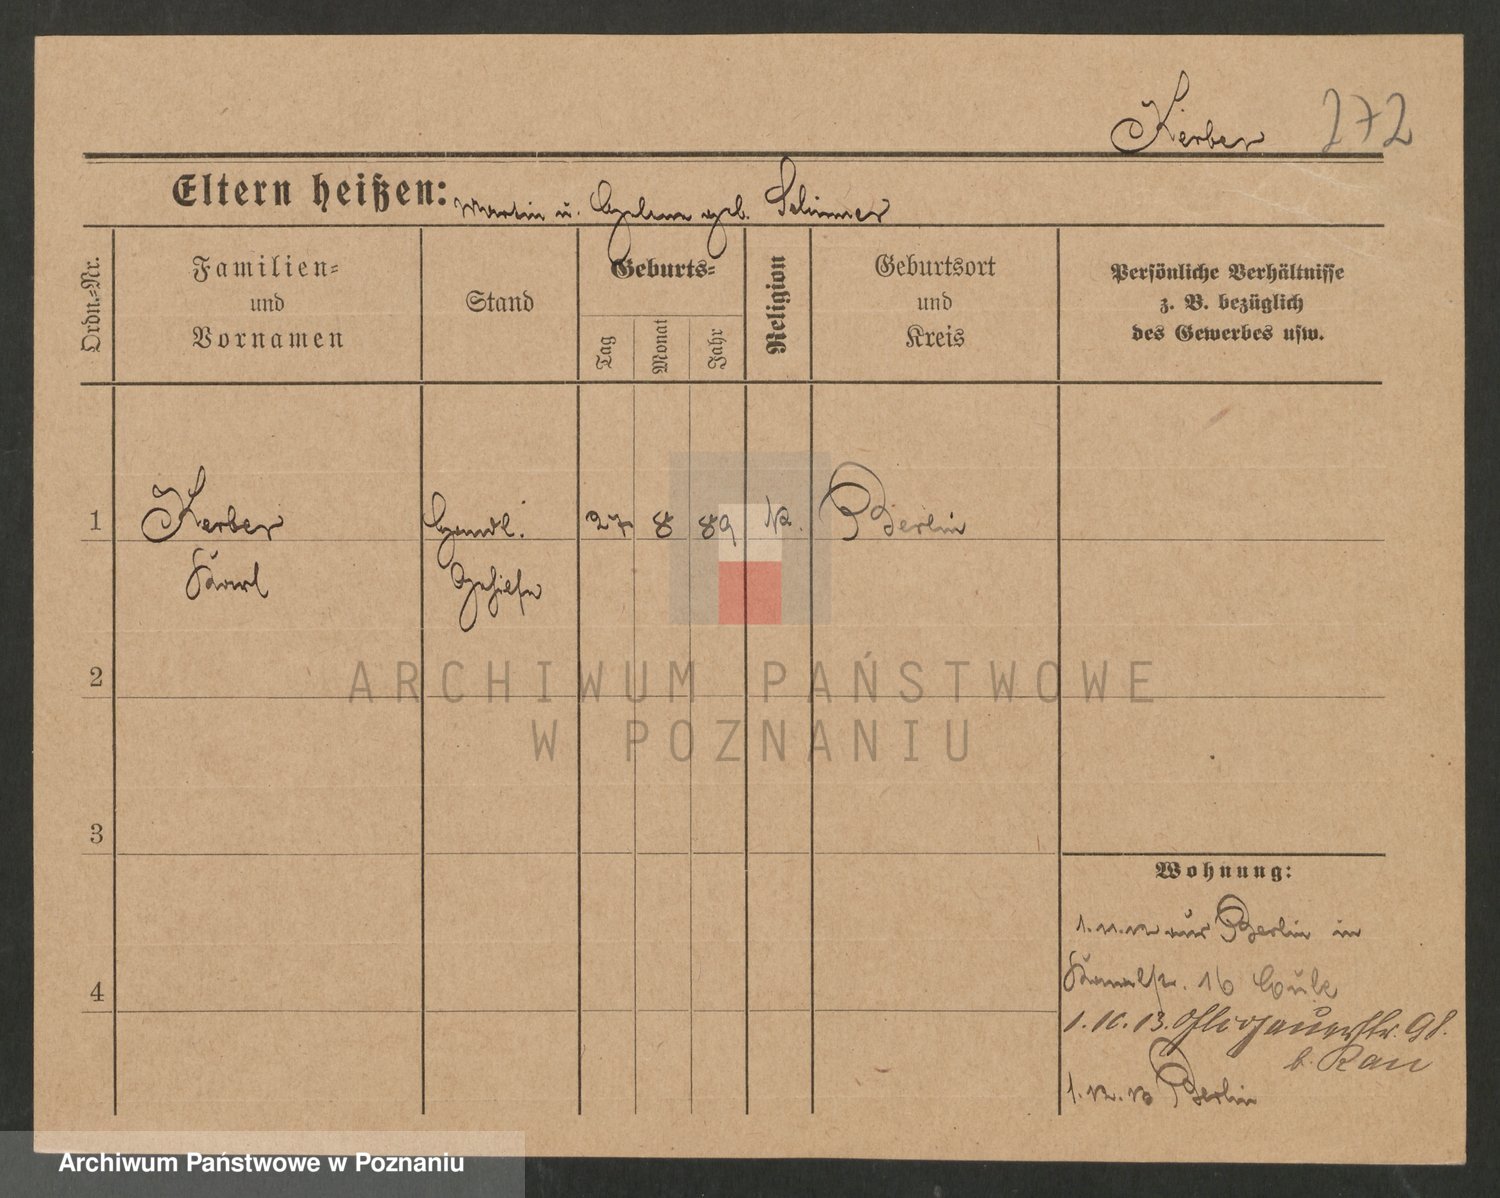 Kerber 272
Eltern heißen: Martin u. Helene geb. Schirmer
Ordn.-Nr.
Familien-
und
Vornamen
Stand
Geburts-
Tag
Monat
Jahr
Religion
Geburtsort
und
Kreis
Persönliche Verhältnisse
z. B. bezüglich
des Gewerbes usw.
1 Kerber Handl. 27 8 89 k. Berlin
Karl Gehilfe
2
3
4
Wohnung:
1.11.12 aus Berlin in
Kanalstr. 16
1.10.13. Glogauerstr. 98.
b. Rau
1.12.13 Berlin
ARCHIWUM PAŃSTWOWE
W POZNANIU
Archiwum Państwowe w Poznaniu